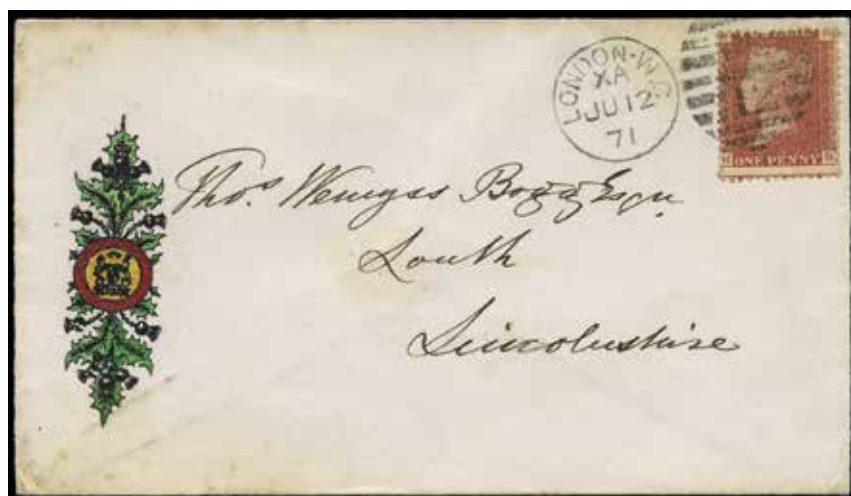 LONDON-W.C
XA
JU 12
71
ONE PENNY
Thos. Wemyss Bogg Esqr.
Louth
Lincolnshire